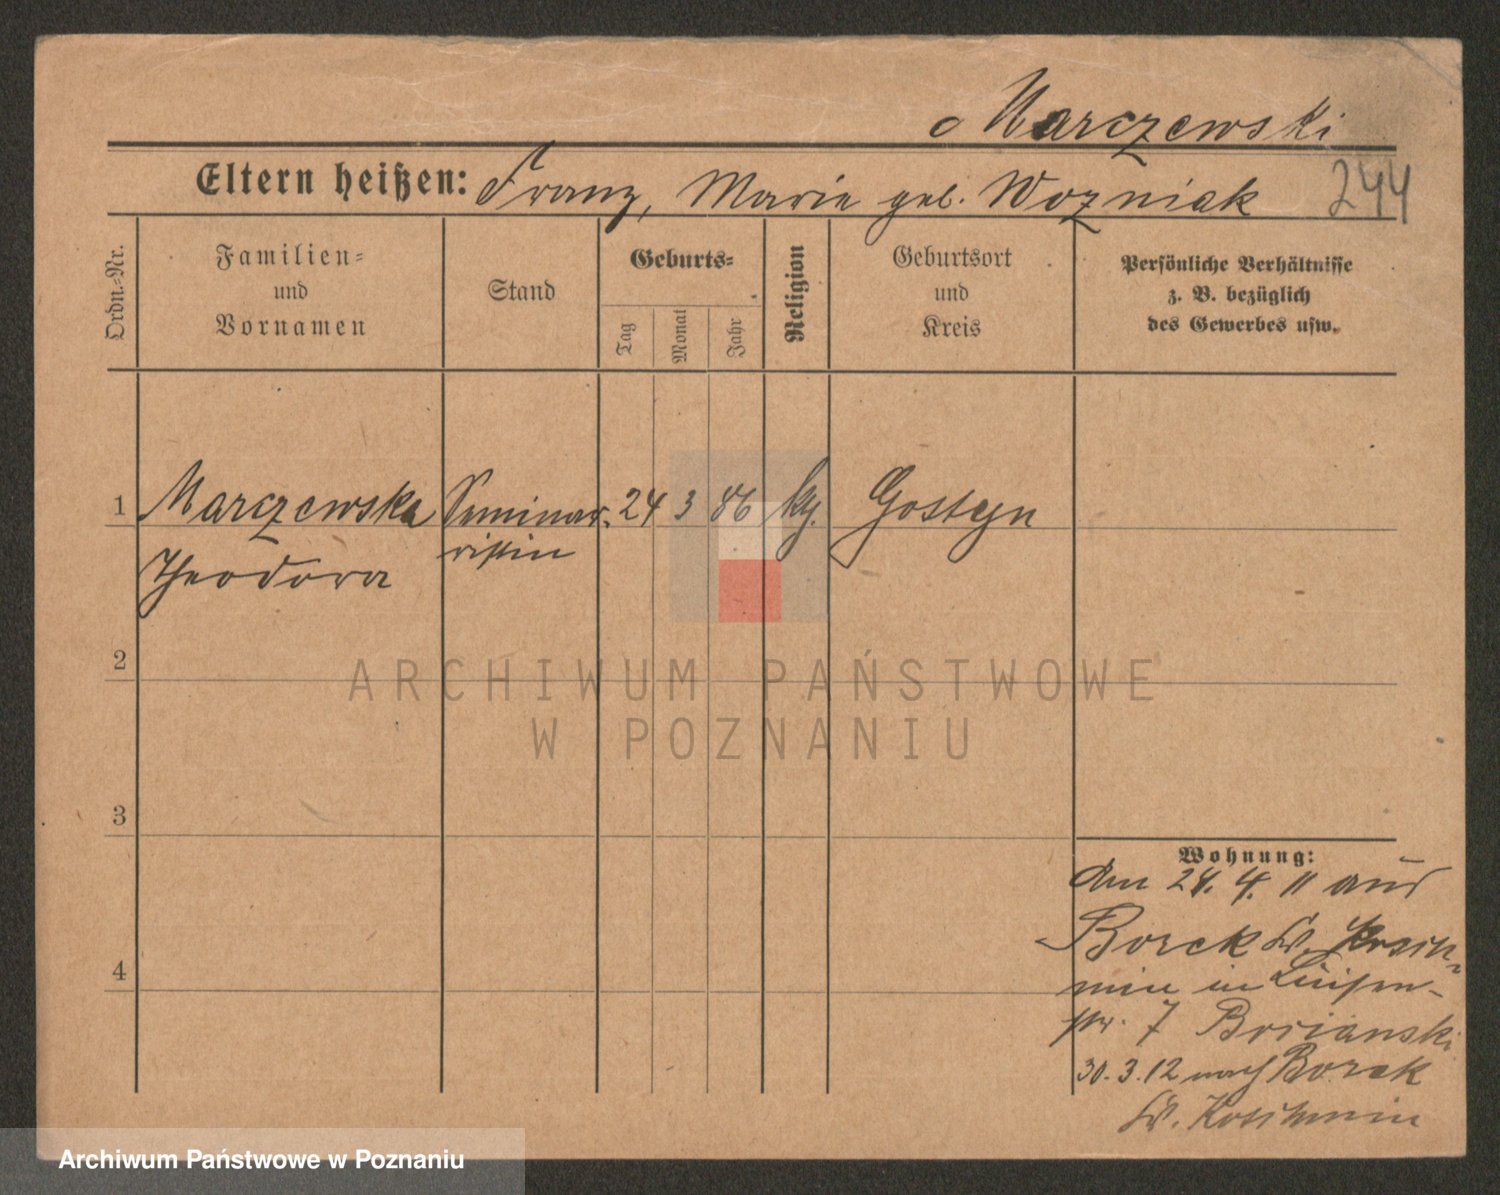 Marczewski
Eltern heißen: Franz, Marie geb. Wozniak 244
Ordn.-Nr.
Familien-
und
Vornamen
Stand
Geburts-
Tag
Monat
Jahr
Religion
Geburtsort
und
Kreis
Persönliche Verhältnisse
z. B. bezüglich
des Gewerbes usw.
1 Marczewska Seminar- 24 3 86 kg. Gostyn
Theodora ristin
2
ARCHIWUM PAŃSTWOWE
W POZNANIU
3
4
Wohnung:
den 24. 4. 11 aus
Borek Kr. Kosch-
min in Luisen-
str. 7
30. 3. 12 nach Borek
Kr. Koschmin
Archiwum Państwowe w Poznaniu